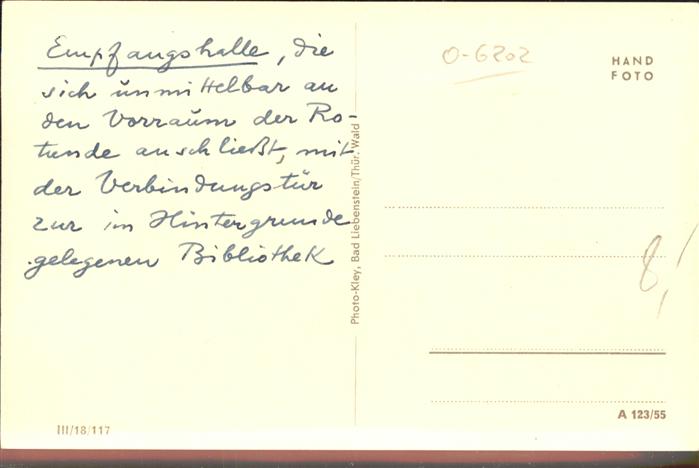 Empfangshalle, die
sich unmittelbar an
den Vorraum der Ro-
tunde anschließt, mit
der Verbindungstür
zur im Hintergrunde
gelegenen Bibliothek
III/18/117
Photo-Kley, Bad Liebenstein/Thür. Wald
O-6202
HAND
FOTO
8,-
A 123/55